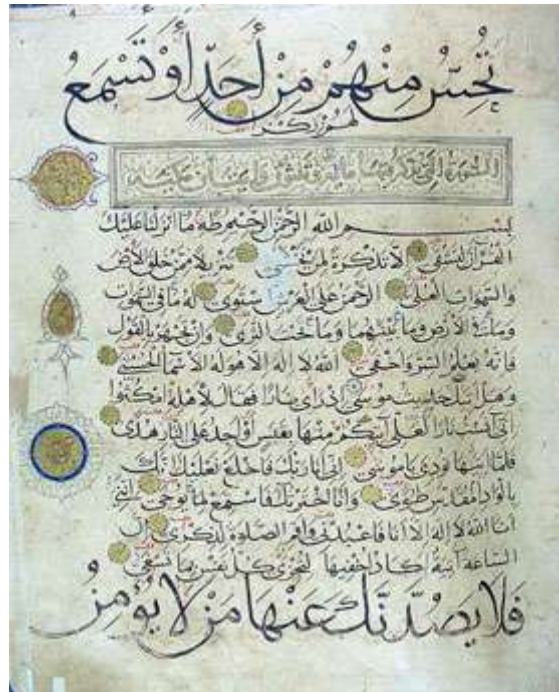 تُحِسُّ مِنْهُمْ مِنْ أَحَدٍ أَوْ تَسْمَعُ
لهم ركزا
السورة التي يذكر فيها مايه وثلثون وايتان مكيه
بسم الله الرحمن الرحيم طه ما انزلنا عليك
القرآن لتشقى الا تذكرة لمن يخشى تنزيلا ممن خلق الأرض
والسموات العلى الرحمن على العرش استوى له ما فى السموات
وما فى الأرض وما بينهما وما تحت الثرى وان تجهر بالقول
فانه يعلم السر واخفى الله لا اله الا هو له الاسماء الحسنى
وهل اتيك حديث موسى اذ راى نارا فقال لأهله امكثوا
انى آنست نارا لعلى آتيكم منها بقبس او اجد على النار هدى
فلما اتيها نودى ياموسى انى انا ربك فاخلع نعليك انك
بالواد المقدس طوى وانا اخترتك فاستمع لما يوحى اننى
انا الله لا اله الا انا فاعبدنى واقم الصلاة لذكرى ان
الساعة آتية اكاد اخفيها لتجزى كل نفس بما تسعى
فَلَا يَصُدَّنَّكَ عَنْهَا مَنْ لَا يُؤْمِنُ